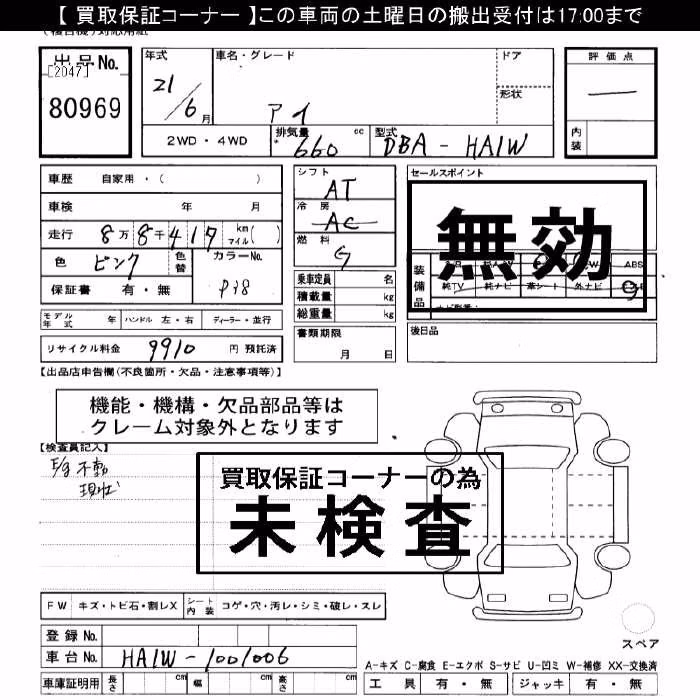 【 買取保証コーナー 】この車両の土曜日の搬出受付は17:00まで
出品No.
[2047]
80969
年式
21/6月
車名・グレード
アイ
ドア
形状
2WD ・ 4WD
排気量
660 cc
型式
DBA - HA1W
評価点
内装
車歴 自家用・( )
車検 年 月
走行 8万8千417 km マイル( )
色 ピンク
色替
カラーNo.
P38
保証書 有・無
シフト
AT
冷房
AC
燃料
G
乗車定員 名
積載量 kg
総重量 kg
書類期限
月 日
セールスポイント
無効
装備品
ABS
純TV 純ナビ 革シート 外ナビ
後日品
モデル年式 年 ハンドル 左・右 ディーラー・並行
リサイクル料金 9910 円 預託済
【出品店申告欄(不良箇所・欠品・注意事項等)】
機能・機構・欠品部品等は
クレーム対象外となります
【検査員記入】
E/g 不動
現状
買取保証コーナーの為
未検査
FW キズ・トビ石・割レX
シート内装 コゲ・穴・汚レ・シミ・破レ・スレ
登録 No.
車台 No. HA1W-1001006
車庫証明用 長さ cm 幅 cm 高さ cm
スペア
A-キズ C-腐食 E-エクボ S-サビ U-凹ミ W-補修 XX-交換済
工具 有・無 ジャッキ 有・無